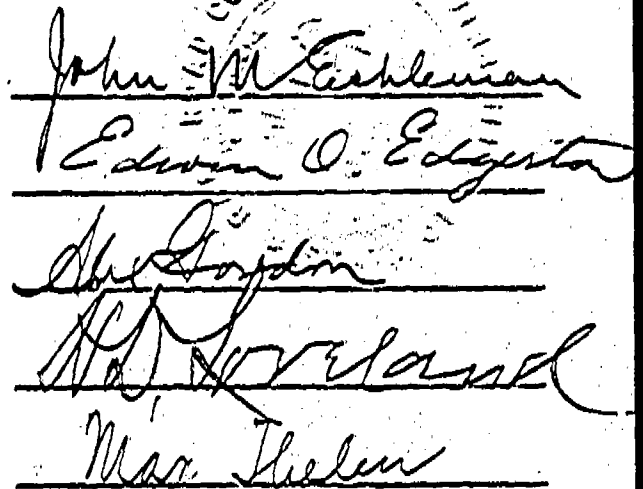 John M Eshleman
Edwin O. Edgerton
Alex Gordon
H.D. Loveland
Max Thelen